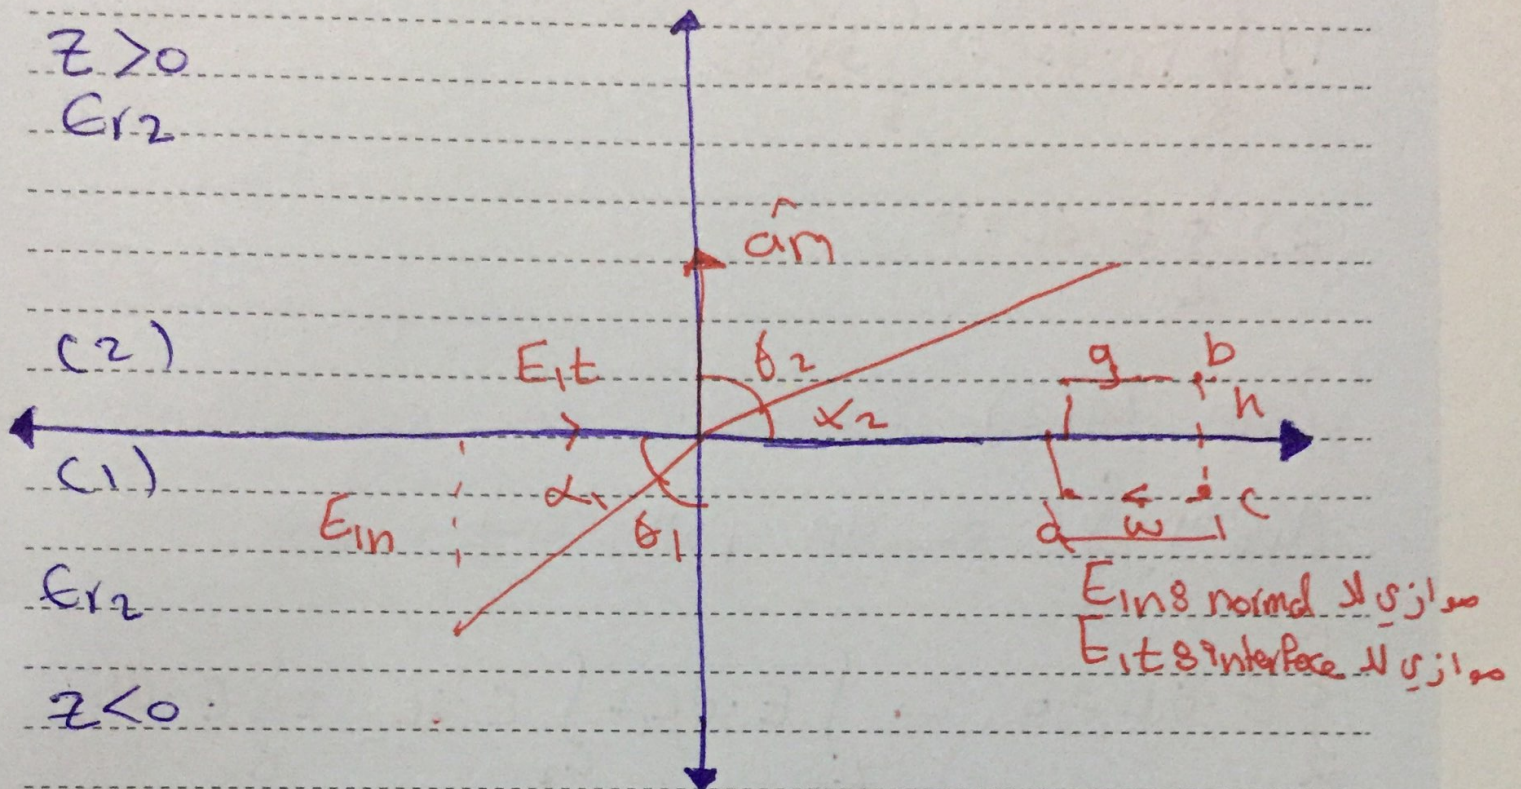 Z>0
Er2
âm
(2)
E1t
θ2
α2
g
b
h
(1)
E1n
α1
θ1
d
w
c
Er2
E1n: normal موازي لا
E1t: interface موازي لل
Z<0